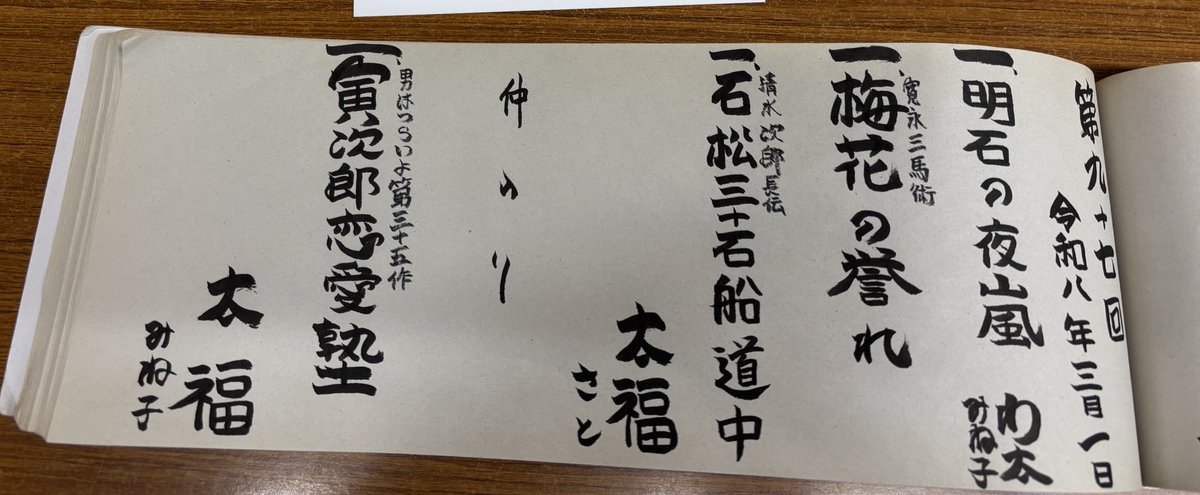 第九十七回
令和八年三月一日
一、明石の夜嵐
わ太
みね子
寛永三馬術
一、梅花の誉れ
清水次郎長伝
一、石松三十石船道中
太福
さと
仲入り
男はつらいよ第三十五作
一、寅次郎恋愛塾
太福
みね子